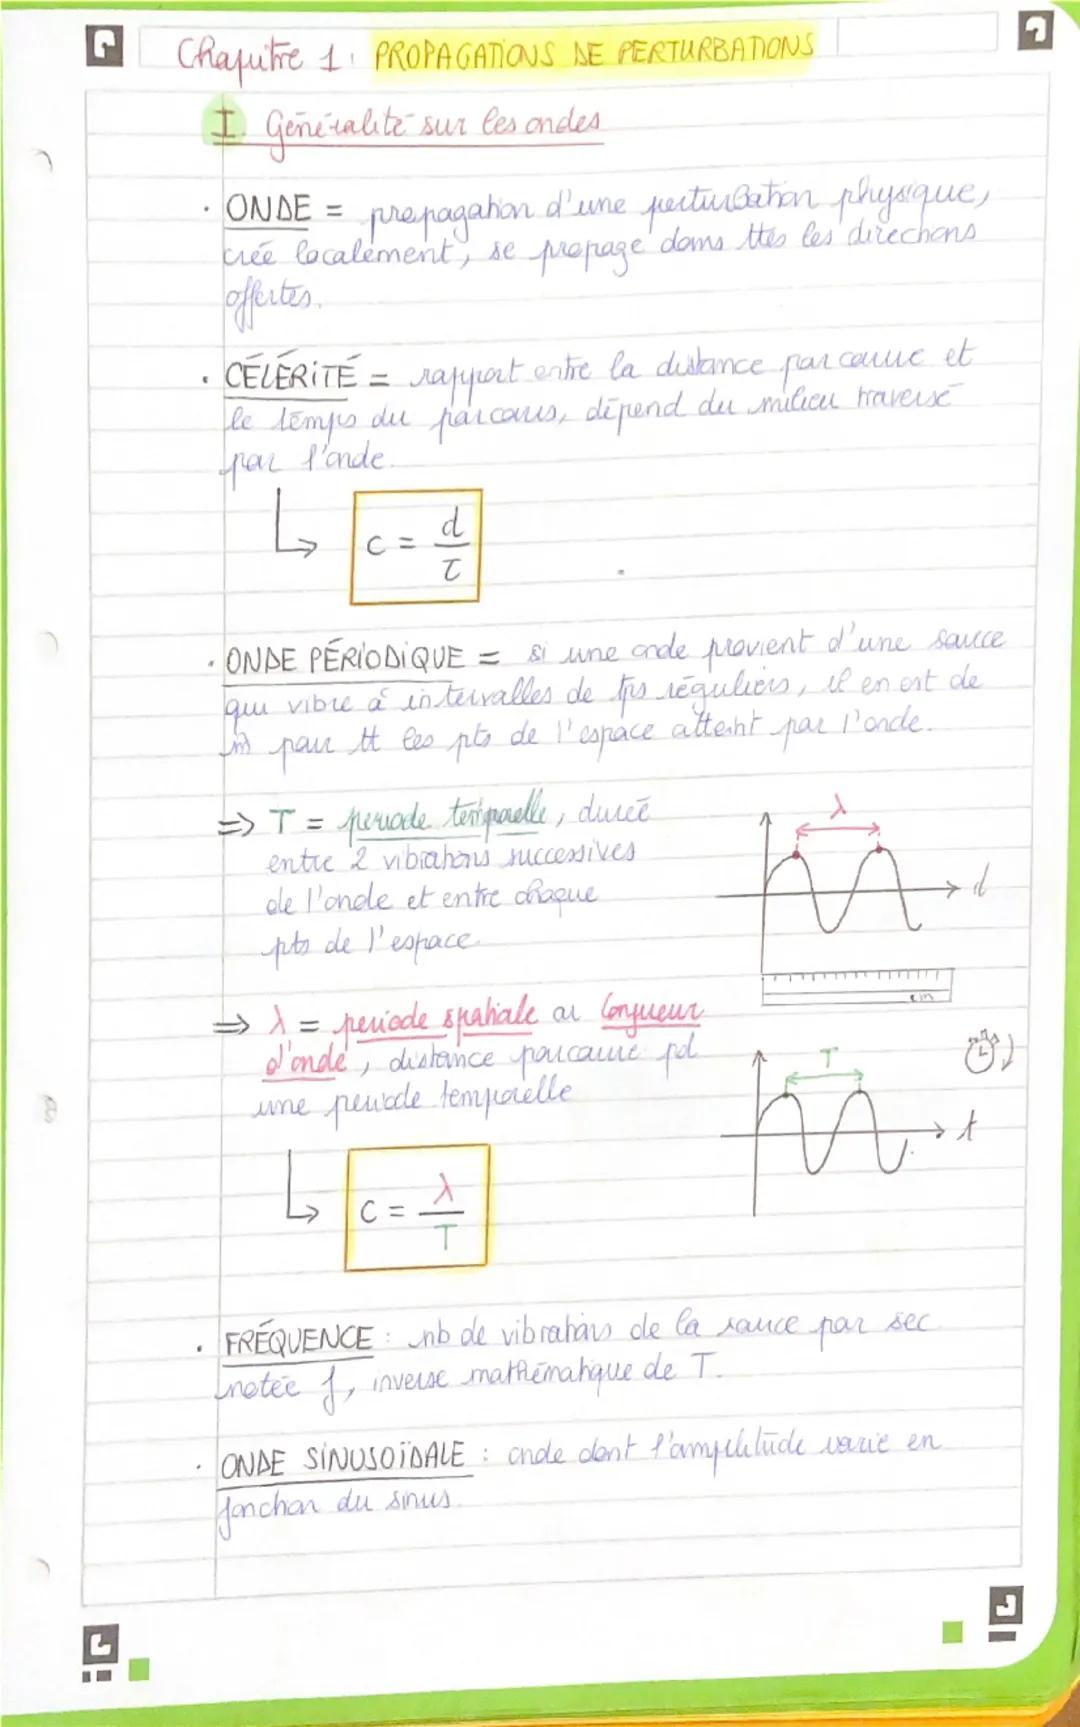 Chapitre 1 : PROPAGATIONS DE PERTURBATIONS
I. Généralité sur les ondes
• ONDE = propagation d'une perturbation physique,
créé localement, se propage dans ttes les directions
offertes.
• CÉLÉRITÉ = rapport entre la distance parcourue et
le temps du parcours, dépend du milieu traversé
par l'onde.
c = d/τ
• ONDE PÉRIODIQUE = si une onde provient d'une source
qui vibre à intervalles de tps réguliers, il en est de
m̂ pour tt les pts de l'espace atteint par l'onde.
⇒ T = période temporelle, durée
entre 2 vibrations successives
de l'onde et entre chaque
pts de l'espace.
λ
d
cm
⇒ λ = période spatiale ou longueur
d'onde, distance parcourue pd
une période temporelle
T
t
c = λ/T
• FRÉQUENCE : nb de vibrations de la source par sec
notée f, inverse mathématique de T.
• ONDE SINUSOÏDALE : onde dont l'amplitude varie en
fonction du sinus.